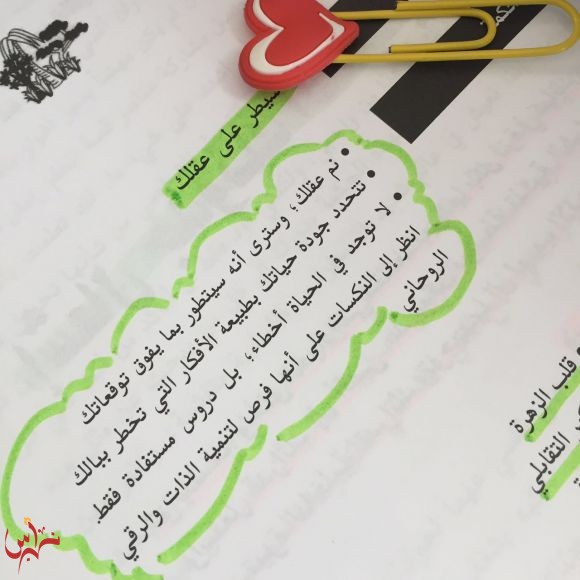 سيطر على عقلك
• نمِّ عقلك؛ وسترى أنه سيتطور بما يفوق توقعاتك
• تتحدد جودة حياتك بطبيعة الأفكار التي تخطر ببالك
• لا توجد في الحياة أخطاء؛ بل دروس مستفادة فقط.
انظر إلى النكسات على أنها فرص لتنمية الذات والرقي
الروحاني
قلب الزهرة
التقابلي
نبراس